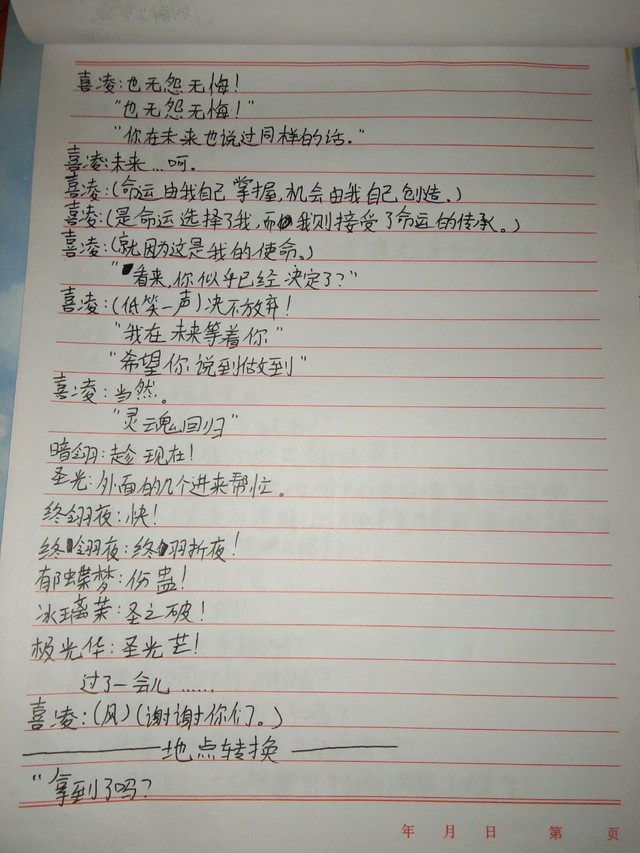 喜凌:也无怨无悔!
"也无怨无悔!"
"你在未来也说过同样的话。"
喜凌:未来...呵。
喜凌:(命运由我自己掌握,机会由我自己创造。)
喜凌:(是命运选择了我,而我则接受了命运的传承。)
喜凌:(就因为这是我的使命。)
"看来,你似乎已经决定了?"
喜凌:(低笑一声)决不放弃!
"我在未来等着你"
"希望你说到做到"
喜凌:当然。
"灵魂回归"
暗翎:趁现在!
圣光:外面的几个进来帮忙。
终翎夜:快!
终翎夜:终羽折夜!
郁蝶梦:伤蛊!
冰璃茉:圣之破!
极光华:圣光芒!
过了一会儿......
喜凌:(风)(谢谢你们。)
地点转换
"拿到了吗?
年 月 日 第 页